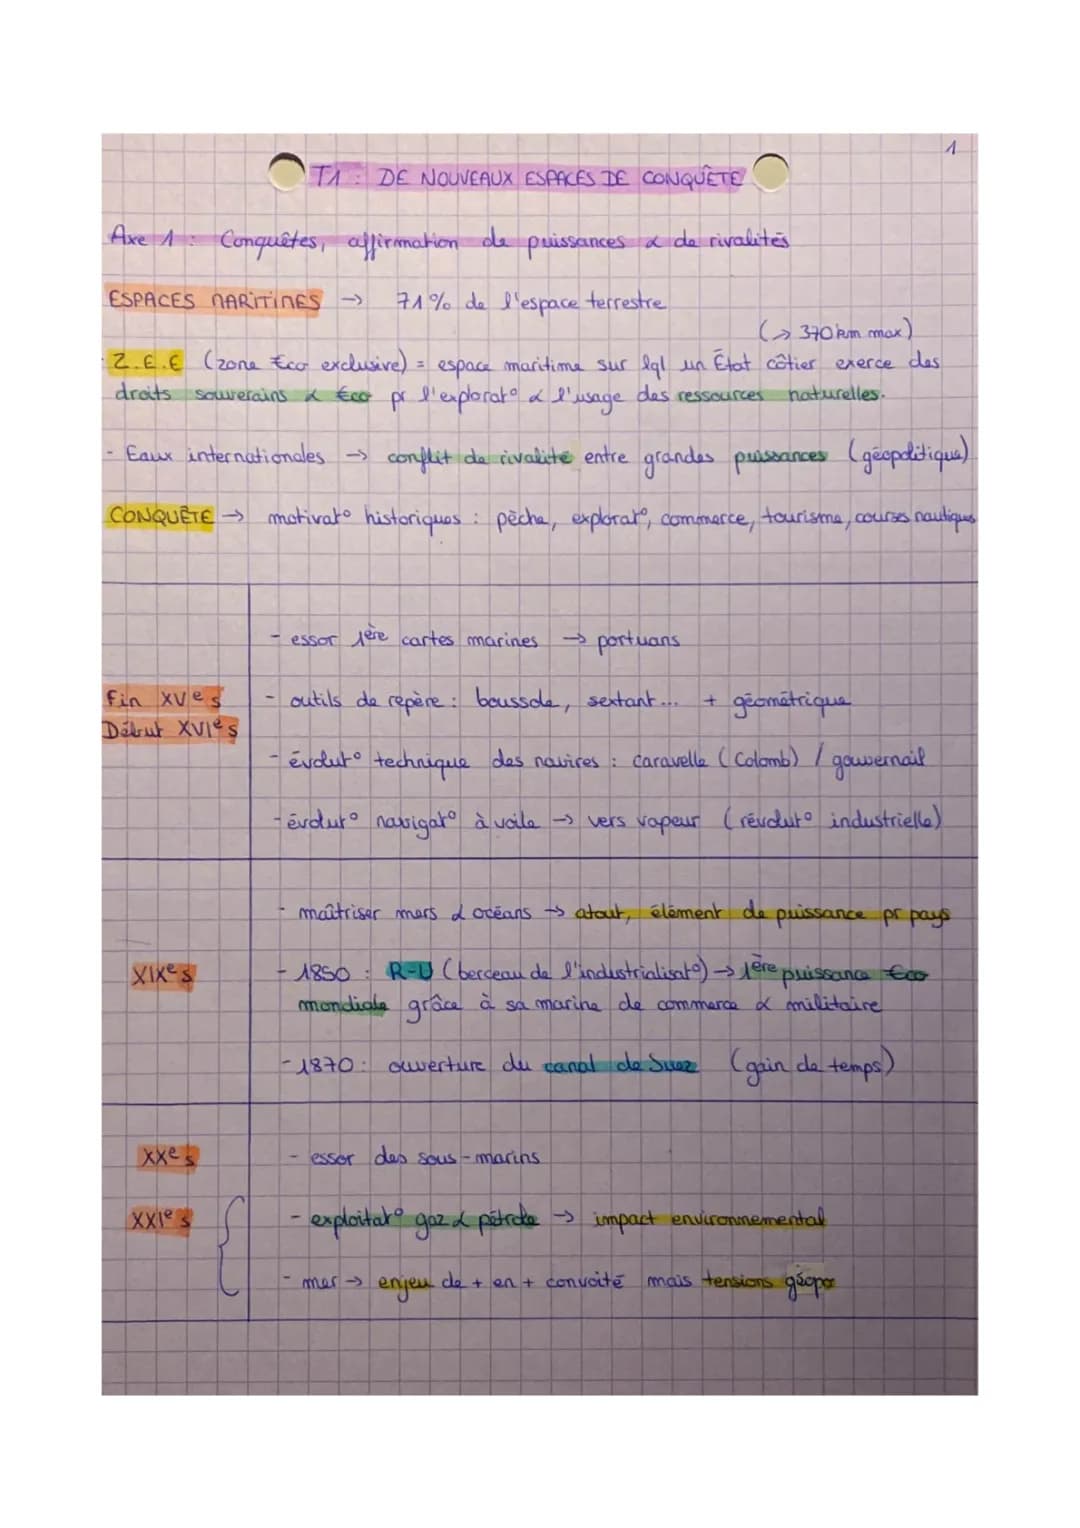 1
T1 : DE NOUVEAUX ESPACES DE CONQUÊTE
Axe 1 : Conquêtes, affirmation de puissances & de rivalités
ESPACES MARITIMES → 71% de l'espace terrestre
(→ 370 km max)
Z.E.E (zone éco exclusive) = espace maritime sur lql un État côtier exerce des
droits souverains & éco pr l'explorat° & l'usage des ressources naturelles.
- Eaux internationales → conflit de rivalité entre grandes puissances (géopolitique)
CONQUÊTE → motivat° historiques : pêche, explorat°, commerce, tourisme, courses nautiques
- essor 1ère cartes marines → portuans
Fin XVe s
Début XVIe s
- outils de repère : boussole, sextant... + géométrique
- évolut° technique des navires : caravelle (Colomb) / gouvernail
- évolut° navigat° à voile → vers vapeur (révolut° industrielle)
XIXe s
- maîtriser mers & océans → atout, élément de puissance pr pays
- 1850 : R-U (berceau de l'industrialisat°) → 1ère puissance éco
mondiale grâce à sa marine de commerce & militaire
- 1870 : ouverture du canal de Suez (gain de temps)
XXe s
- essor des sous-marins
XXIe s
- exploitat° gaz & pétrole → impact environnemental
- mer → enjeu de + en + convoité mais tensions géopo